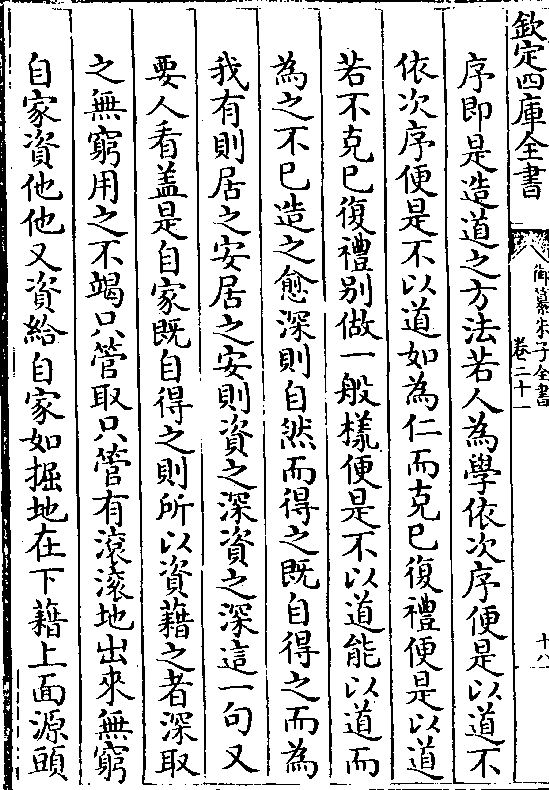 欽定四庫全書
御纂朱子全書
卷二十一
十八
序即是造道之方法若人為學依次序便是以道不
依次序便是不以道如為仁而克已復禮便是以道
若不克已復禮别做一般様便是不以道能以道而
為之不已造之愈深則自然而得之既自得之而為
我有則居之安居之安則資之深資之深這一句又
要人看盖是自家既自得之則所以資藉之者深取
之無窮用之不竭只管取只管有滾滾地出來無窮
自家資他他又資給自家如掘地在下藉上面源頭